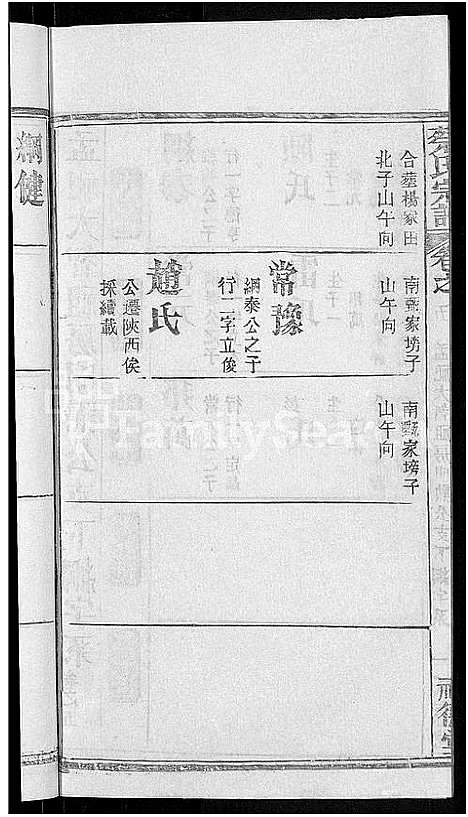 蔡氏宗譜
卷之
合塟楊家田
北子山午向
南甄家塝子
山午向
常豫
綱泰公之子
行二字立俊
趙氏
公遷陝西俟
採續載
南甄家塝子
山午向
綱健
FamilySearch